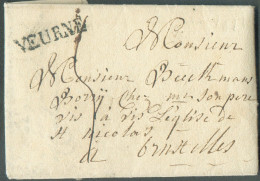 VEURNE
Monsieur
Monsieur Beeckmans
chez mr son pere
vis a vis l'église de
st nicolas
a bruxelles